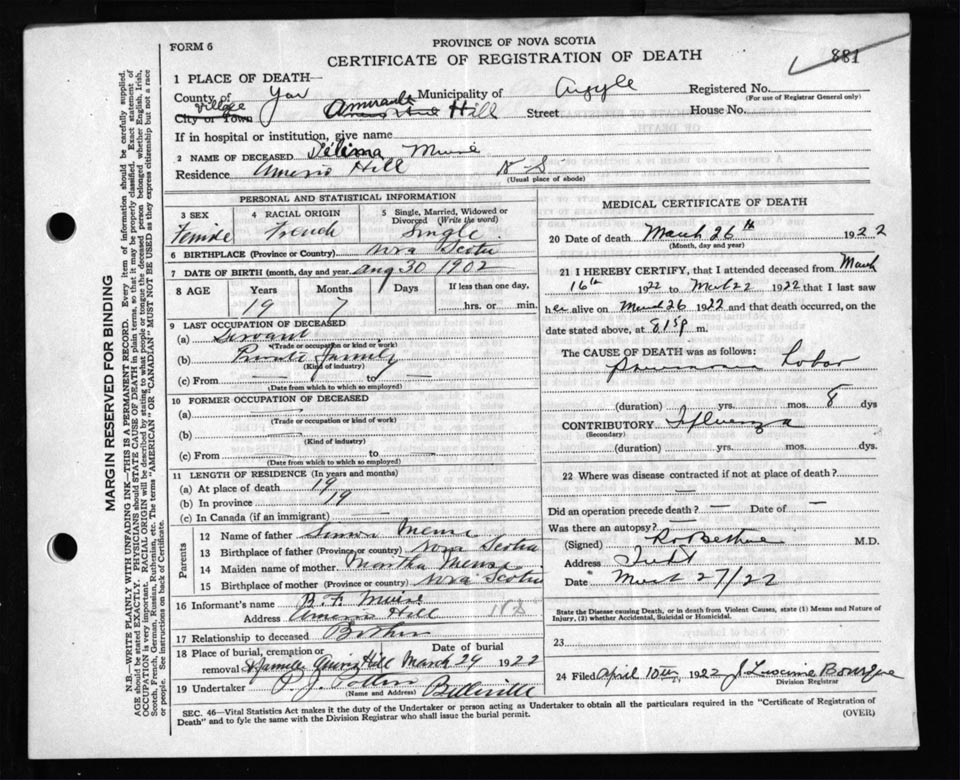 FORM 6
PROVINCE OF NOVA SCOTIA
CERTIFICATE OF REGISTRATION OF DEATH
881
1 PLACE OF DEATH—
County of Yar Municipality of Argyle Registered No.
(For use of Registrar General only)
Village
City or Town Amiraults Hill Street House No.
If in hospital or institution, give name
2 NAME OF DECEASED Muise
Residence Hill N-S
(Usual place of abode)
PERSONAL AND STATISTICAL INFORMATION
3 SEX
Female
4 RACIAL ORIGIN
French
5 Single, Married, Widowed or Divorced (Write the word)
Single
6 BIRTHPLACE (Province or Country) Nova Scotia
7 DATE OF BIRTH (month, day and year) Aug 30 1902
8 AGE Years Months Days If less than one day,
19 7 hrs. or min.
9 LAST OCCUPATION OF DECEASED
(a) Servant
(Trade or occupation or kind of work)
(b) Private family
(Kind of industry)
(c) From — to —
(Date from which to which so employed)
10 FORMER OCCUPATION OF DECEASED
(a) —
(Trade or occupation or kind of work)
(b) —
(Kind of industry)
(c) From — to —
(Date from which to which so employed)
11 LENGTH OF RESIDENCE (In years and months)
(a) At place of death 19
(b) In province 19
(c) In Canada (if an immigrant) —
Parents
12 Name of father Simon
13 Birthplace of father (Province or country) Nova Scotia
14 Maiden name of mother Martha
15 Birthplace of Mother (Province or country) Nova Scotia
16 Informant's name B. F. Muise
Address Hill NS
17 Relationship to deceased Brother
18 Place of burial, cremation or removal Hill
Date of burial March 29 1922
19 Undertaker P. J. Belleville
(Name and Address)
MEDICAL CERTIFICATE OF DEATH
20 Date of death March 26th 1922
(Month, day and year)
21 I HEREBY CERTIFY, that I attended deceased from March
16th 1922 to 1922 that I last saw
her alive on March 26 1922 and that death occurred, on the
date stated above, at m.
The CAUSE OF DEATH was as follows:
Pneumonia Lobar
(duration) yrs. mos. 8 dys
CONTRIBUTORY Influenza
(Secondary)
(duration) yrs. mos. dys.
22 Where was disease contracted if not at place of death?
—
Did an operation precede death? — Date of —
Was there an autopsy? —
(Signed) M.D.
Address
Date March 27/22
State the Disease causing Death, or in death from Violent Causes, state (1) Means and Nature of
Injury, (2) whether Accidental, Suicidal or Homicidal.
23
24 Filed April 10th, 1922 J Bourque
Division Registrar
SEC. 46—Vital Statistics Act makes it the duty of the Undertaker or person acting as Undertaker to obtain all the particulars required in the "Certificate of Registration of
Death" and to fyle the same with the Division Registrar who shall issue the burial permit.
(OVER)
MARGIN RESERVED FOR BINDING
N.B.—WRITE PLAINLY WITH UNFADING INK—THIS IS A PERMANENT RECORD. Every item of information should be carefully supplied.
AGE should be stated EXACTLY. PHYSICIANS should STATE CAUSE OF DEATH in plain terms, so that it may be properly classified. Exact statement of
OCCUPATION is very important. RACIAL ORIGIN will be described by stating to what people or tongue the deceased person belonged whether English, Irish,
Scotch, French, German, Russian, Ruthenian, etc. The terms "AMERICAN" OR "CANADIAN" MUST NOT BE USED as they express citizenship but not a race
or people. See instructions on back of Certificate.